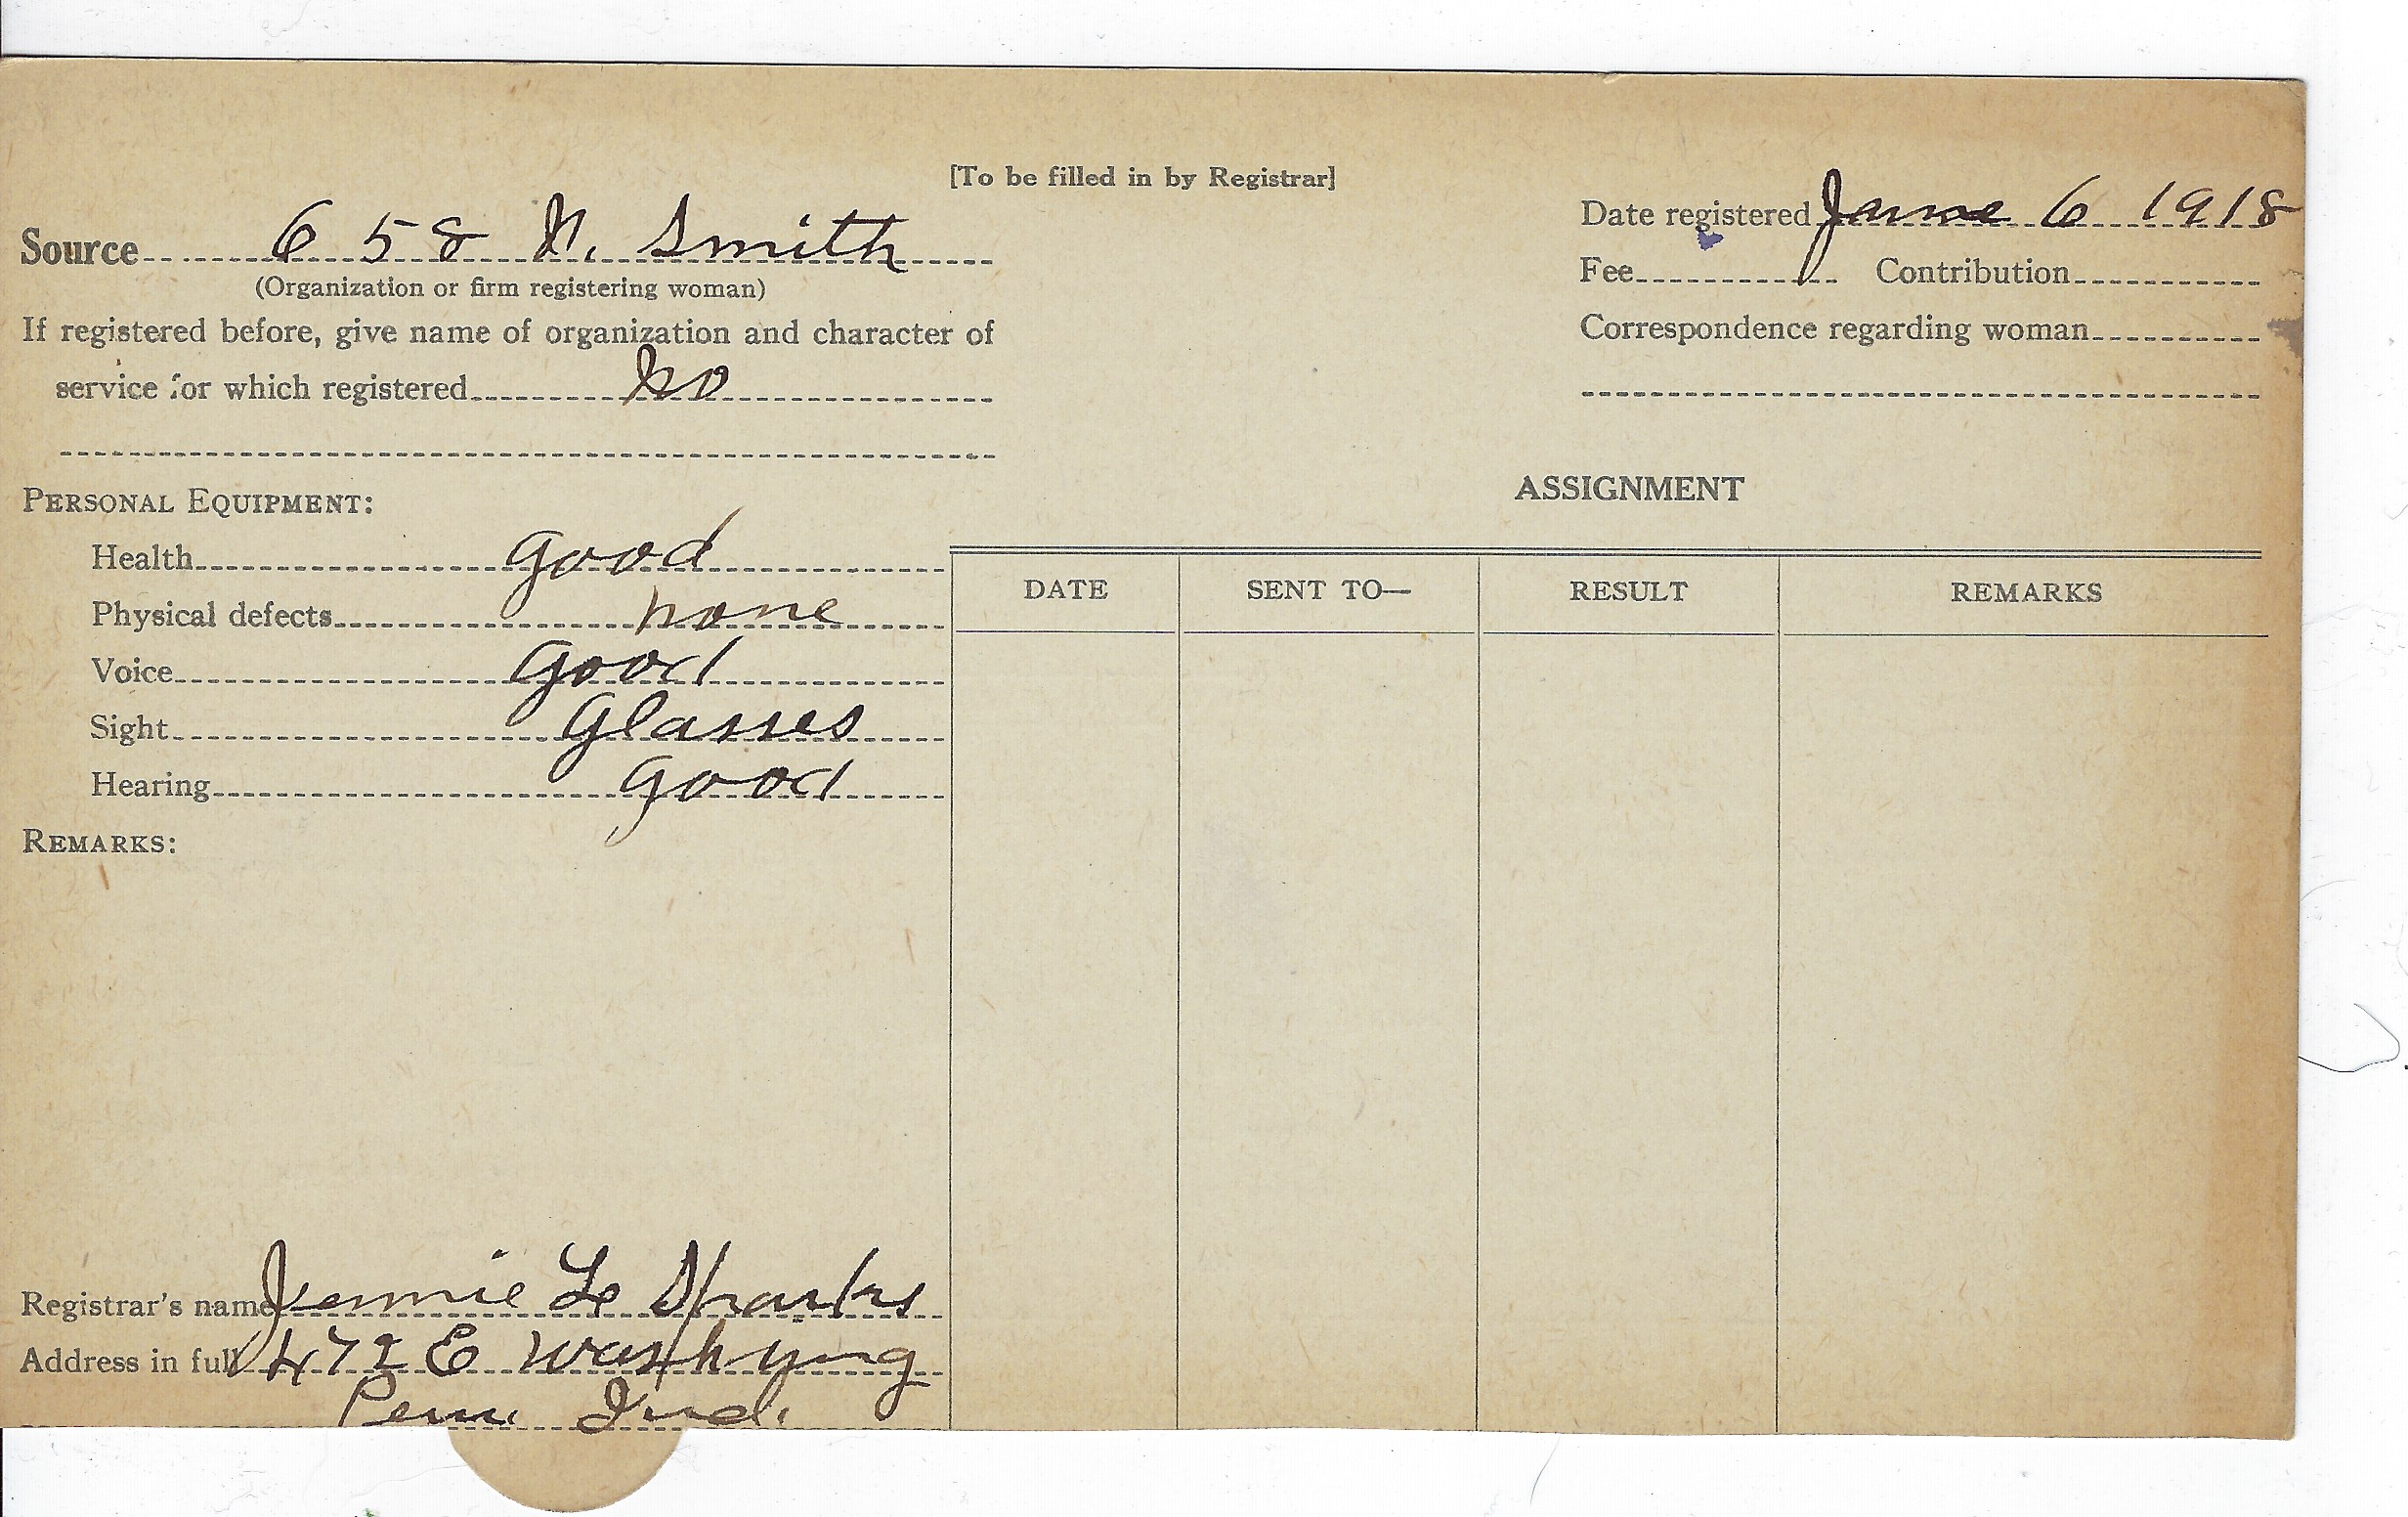 [To be filled in by Registrar]
Source 658 N. Smith
(Organization or firm registering woman)
If registered before, give name of organization and character of
service for which registered No
Date registered June 6 1918
Fee Contribution
Correspondence regarding woman
PERSONAL EQUIPMENT:
Health good
Physical defects none
Voice Good
Sight Glasses
Hearing Good
REMARKS:
ASSIGNMENT
DATE SENT TO— RESULT REMARKS
Registrar's name Jennie Le Sharks
Address in full 472 E
Peru Ind.